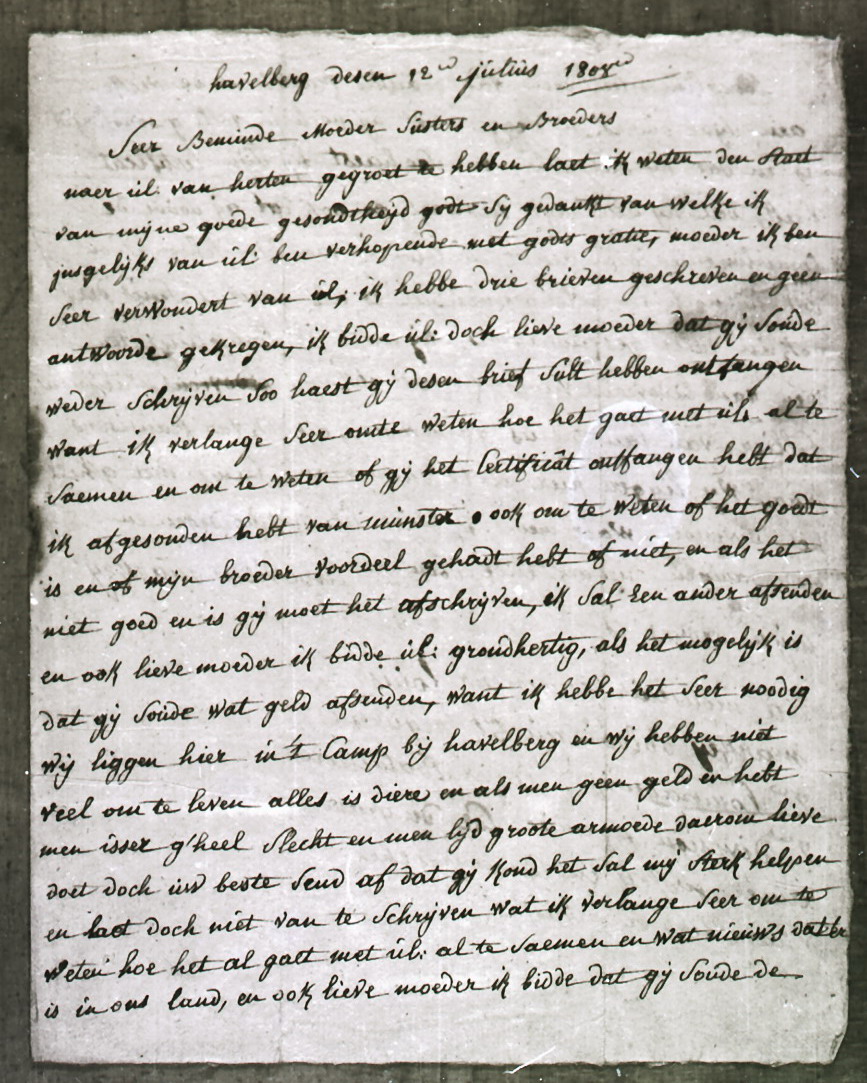 havelberg desen 12en julius 1808
Seer Beminde Moeder Susters en Broeders
naer ul: van herten gegroet te hebben laet ik weten den staet
van mijne goede gesondtheyd godt sij gedankt van welke ik
jnsgelijks van ul: ben verhopende met godts gratie, moeder ik ben
seer verwondert van ul; ik hebbe drie brieven geschreven en geen
antwoorde gekregen, ik bidde ul: doch lieve moeder dat gij soude
weder schrijven soo haest gij desen brief sult hebben ontfangen
want ik verlange seer omte weten hoe het gaet met ul: al te
saemen en om te weten of gij het Certificat ontfangen hebt dat
ik afgesonden hebt van munster ook om te weten of het goedt
is en of mijn broeder voordeel gehadt hebt of niet, en als het
niet goed en is gij moet het afschrijven, ik sal Een ander afsenden
en ook lieve moeder ik bidde ul: grondhertig, als het mogelijk is
dat gij soude wat geld afsenden, want ik hebbe het seer noodig
wij liggen hier in't Camp bij havelberg en wij hebben niet
veel om te leven alles is diere en als men geen geld en hebt
men isser g'heel slecht en men lijd groote armoede daerom lieve
doet doch uw beste send af dat gij kond het sal mij sterk helpen
en laet doch niet van te schrijven wat ik verlange seer om te
weten hoe het al gaet met ul: al te saemen en wat nieuws dat er
is in ons land, en ook lieve moeder ik bidde dat gij soude de